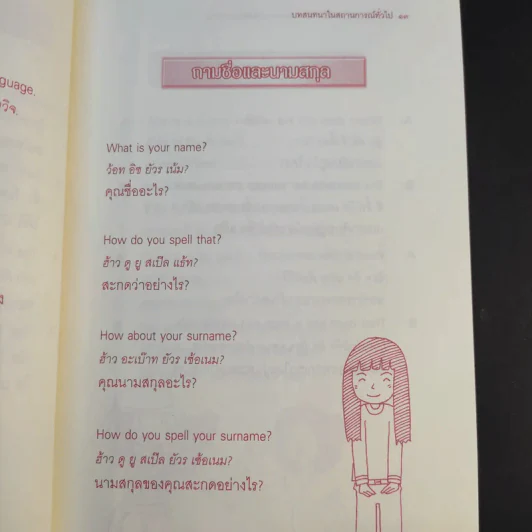 บทสนทนาในสถานการณ์ทั่วไป ๑๓
ถามชื่อและนามสกุล
guage.
What is your name?
ว้อท อิซ ยัวร เน้ม?
คุณชื่ออะไร?
How do you spell that?
ฮ้าว ดู ยู สเป๊ล แธ้ท?
สะกดว่าอย่างไร?
How about your surname?
ฮ้าว อะเบ๊าท ยัวร เซ้อเนม?
คุณนามสกุลอะไร?
How do you spell your surname?
ฮ้าว ดู ยู สเป๊ล ยัวร เซ้อเนม?
นามสกุลของคุณสะกดอย่างไร?